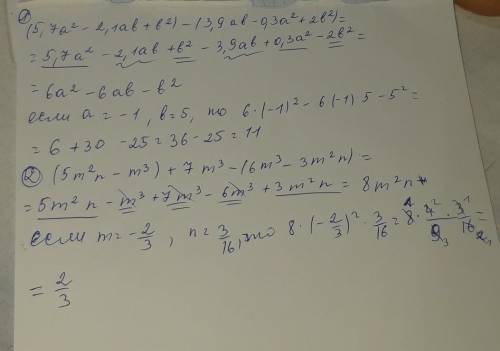 ①
(5,7a² - 2,1ab + b²) - (3,9ab - 0,3a² + 2b²) =
= 5,7a² - 2,1ab + b² - 3,9ab + 0,3a² - 2b² =
= 6a² - 6ab - b²
если a = -1, b = 5, то 6·(-1)² - 6(-1)·5 - 5² =
= 6 + 30 - 25 = 36 - 25 = 11
② (5m²n - m³) + 7m³ - (6m³ - 3m²n) =
= 5m²n - m³ + 7m³ - 6m³ + 3m²n = 8m²n
если m = -2/3, n = 3/16, то 8·(-2/3)²·3/16 = 8·4·3/9·16 =
= 2/3